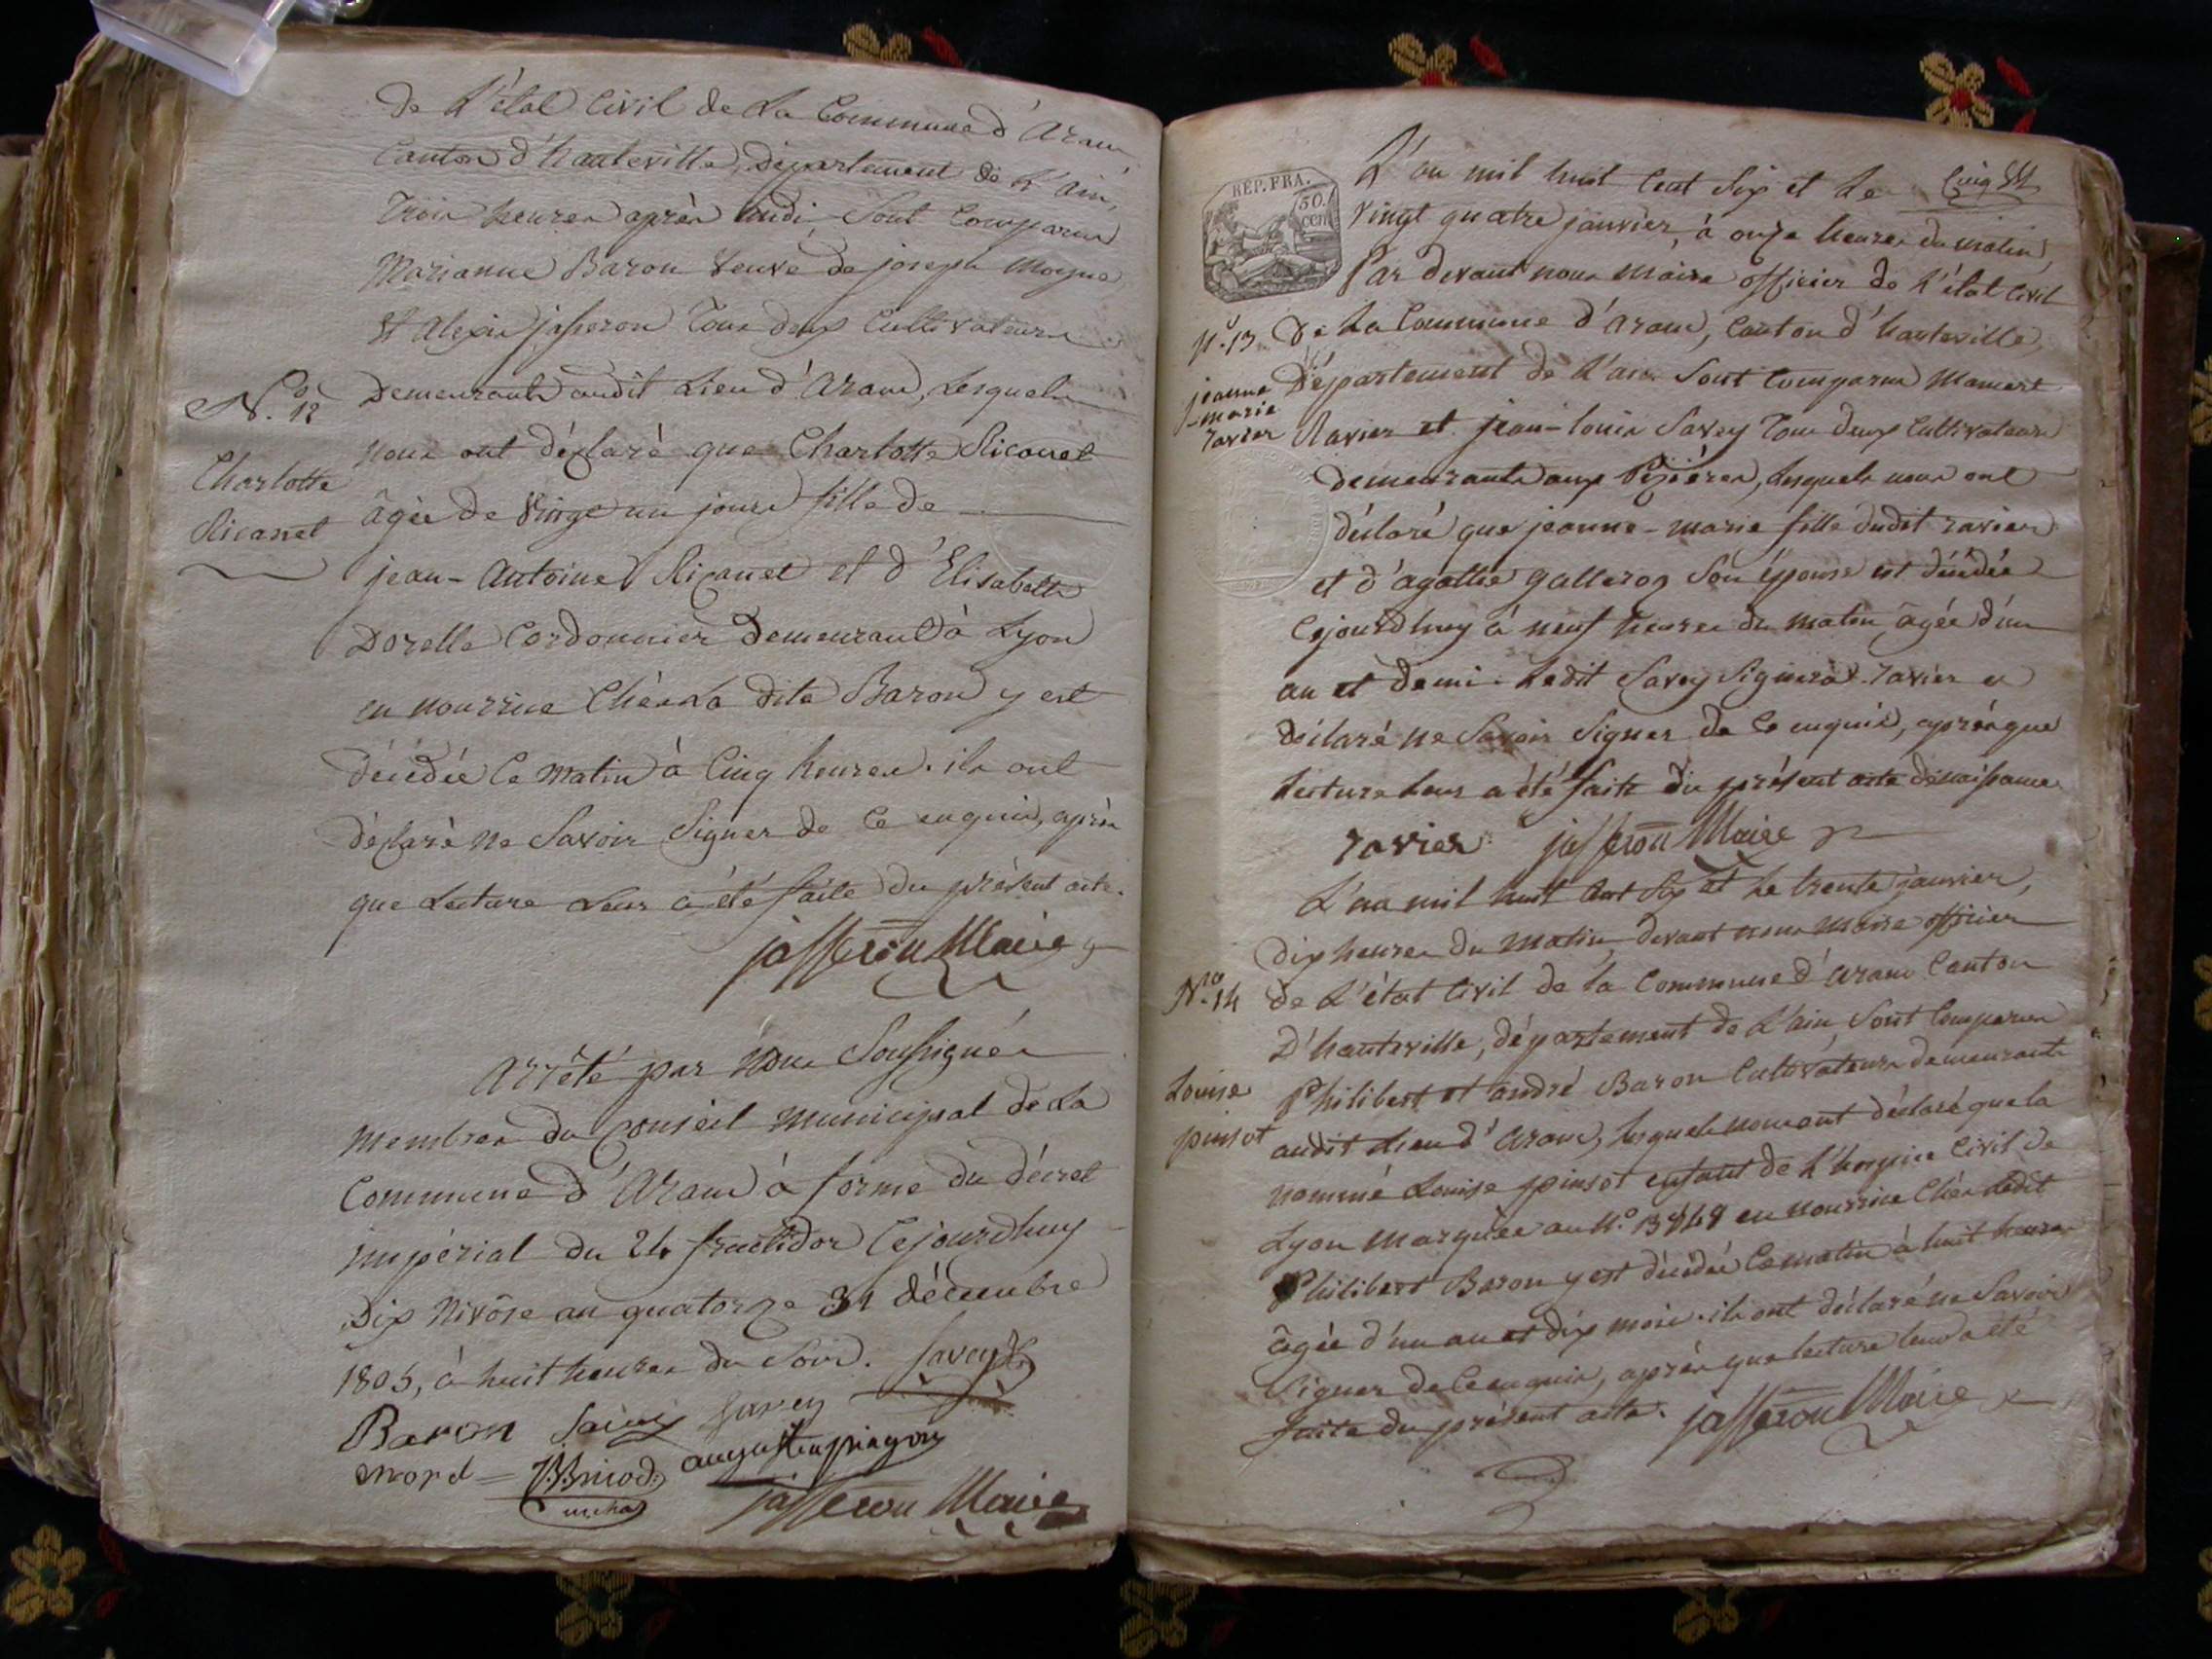 de L'état Civil de La Commune d'Aranc
Canton d'hauteville, Département de L'ain,
Trois heures après midi, Sont Comparus
Marianne Baron veuve de joseph moyne
Et Alexis jasseron Tous deux Cultivateurs
Demeurants audit Lieu d'Aranc, Lesquels
N.o 12
nous ont déclaré que Charlotte Ricanet
Charlotte
Ricanet
âgée de Vingt un jours fille de
jean-Antoine Ricanet et d'Elisabeth
Dorelle Cordonnier Demeurant à Lyon
en nourrice Chés La dite Baron y est
décédée Ce matin à Cinq heures. ils ont
déclaré ne Savoir Signer de Ce enquis, après
que Lecture Leur a été faite du présent acte.
jasseron Maire
Arrêté par Nous Soussignés
membres du Conseil municipal de La
Commune d'Aranc à forme du décret
impérial du 24 fructidor Cejourdhuy
Dix Nivôse an quatorze 31 décembre
1805, à huit heures du Soir. Savey
Baron Savey
mord
augustin pingon
jasseron Maire
REP. FRA.
50. cen
L'an mil huit Cent Six et Le
Vingt quatre janvier, à onze heures du matin,
Par devant nous Maire officier de L'état Civil
N.o 13
De La Commune d'Aranc, Canton d'hauteville,
jeanne
-marie
ravier
Département de L'ain Sont Comparus Mamert
Ravier et jean-louis Savey Tous deux Cultivateurs
demeurants aux Pézières, Lesquels nous ont
déclaré que jeanne-marie fille dudit ravier
et d'agathe Son épouse est décédée
Cejourdhuy à neuf heures du matin, âgée d'un
an et demi. Ledit Savey Signera. ravier a
déclaré ne Savoir Signer de Ce enquis, après que
Lecture Leur a été faite du présent acte denaissance
ravier jasseron Maire
L'an mil huit Cent Six et Le trente janvier,
Dix heures du matin, devant nous Maire officier
N.o 14
de L'état Civil de la Commune d'Aranc Canton
D'hauteville, département de L'ain, Sont Comparus
Louise
pinsot
Philibert et andré Baron Cultivateurs demeurants
audit Lieu d'Aranc, Lesquels nous ont déclaré que la
nommé Louise pinsot enfant de L'hospice Civil de
Lyon Marquée au N.o en nourrice Chés Ledit
Philibert Baron y est décédée Ce matin à huit heures
âgée d'un an et dix mois. ils ont déclaré ne Savoir
Signer de Ce enquis, après que lecture leur a été
faite du présent acte. jasseron Maire